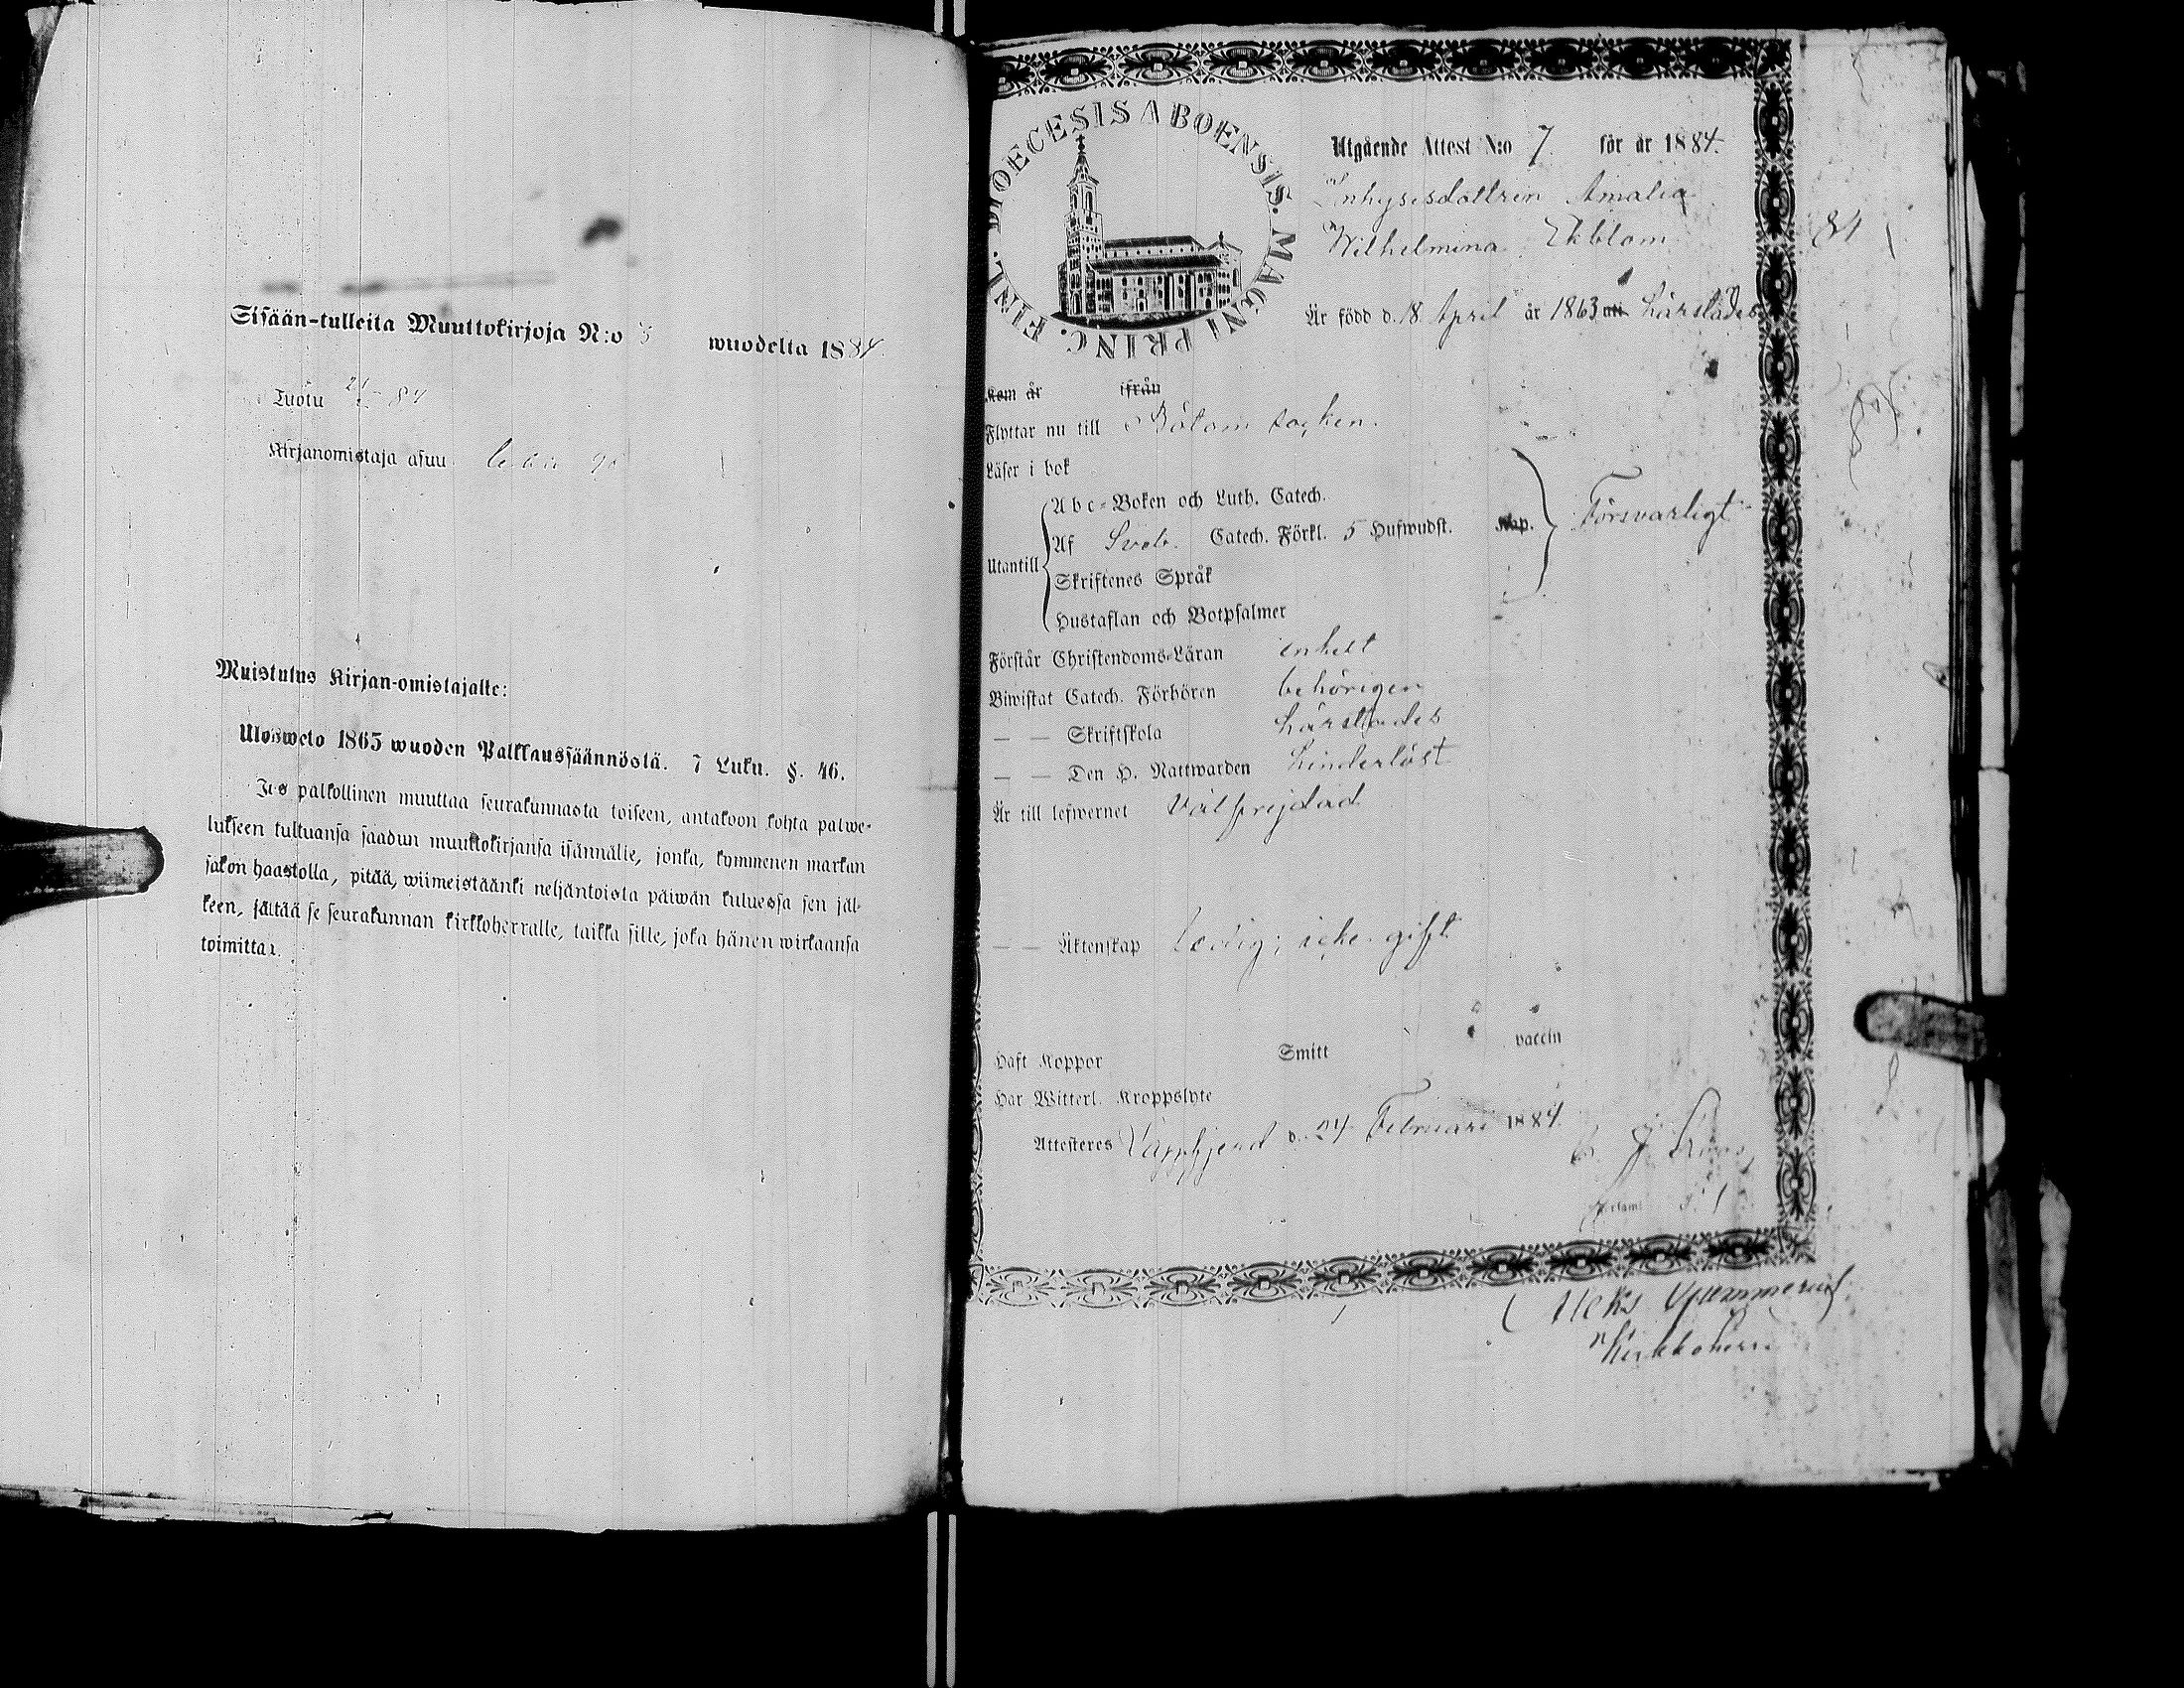 Sisään-tulleita Muuttokirjoja N:o 3 wuodelta 1884.
Tuotu 21/ 84
Kirjanomistaja asuu
Muistutus Kirjan-omistajalle:
Ulosweto 1865 wuoden Palkkaussäännöstä. 7 Luku. §. 46.
Jos palkollinen muuttaa seurakunnasta toiseen, antakoon kohta palwe-
lukseen tultuansa saadun muuttokirjansa isännälle, jonka, kymmenen markan
sakon haastolla, pitää, wiimeistäänki neljäntoista päiwän kuluessa sen jäl-
keen, jättää se seurakunnan kirkkoherralle, taikka sille, joka hänen wirkaansa
toimittaa.
FINL. DIOECESIS ABOENSIS. MAGNI PRINC.
Utgående Attest N:o 7 för år 1884.
Inhysesdottren Amalia
Wilhelmina Ekblom
84
Är född d. 18 April år 1863 uti härstädes
Kom år ifrån
Flyttar nu till Bötom socken.
Läser i bok
Utantill
Abc-Boken och Luth. Catech.
Af Sveb. Catech. Förkl. 5 Hufwudst. Kap.
Försvarligt
Skriftenes Språk
Hustaflan och Botpsalmer
Förstår Christendoms-Läran enkelt
Biwistat Catech. Förhören behörigen
— — Skriftskola härstädes
— — Den H. Nattwarden hinderlöst
Är till lefwernet Välfrejdad
— — Äktenskap Ledig; icke gift
Haft Koppor Smitt vaccin
Har Witterl. Kroppslyte
Attesteres Lappfjerd d. 24 Februari 1884.
Kirkkoherra